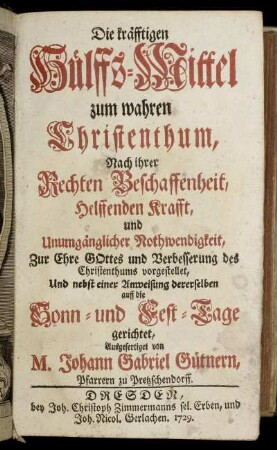 Die kräfftigen
Hülffs-Mittel
zum wahren
Christenthum,
Nach ihrer
Rechten Beschaffenheit,
Helffenden Krafft,
und
Unumgänglicher Nothwendigkeit,
Zur Ehre GOttes und Verbesserung des
Christenthums vorgestellet,
Und nebst einer Anweisung dererselben
auff die
Sonn- und Fest-Tage
gerichtet,
Ausgefertiget von
M. Johann Gabriel Gütnern,
Pfarrern zu Pretzschendorff.
DRESDEN,
bey Joh. Christoph Zimmermanns sel. Erben, und
Joh. Nicol. Gerlachen. 1729.